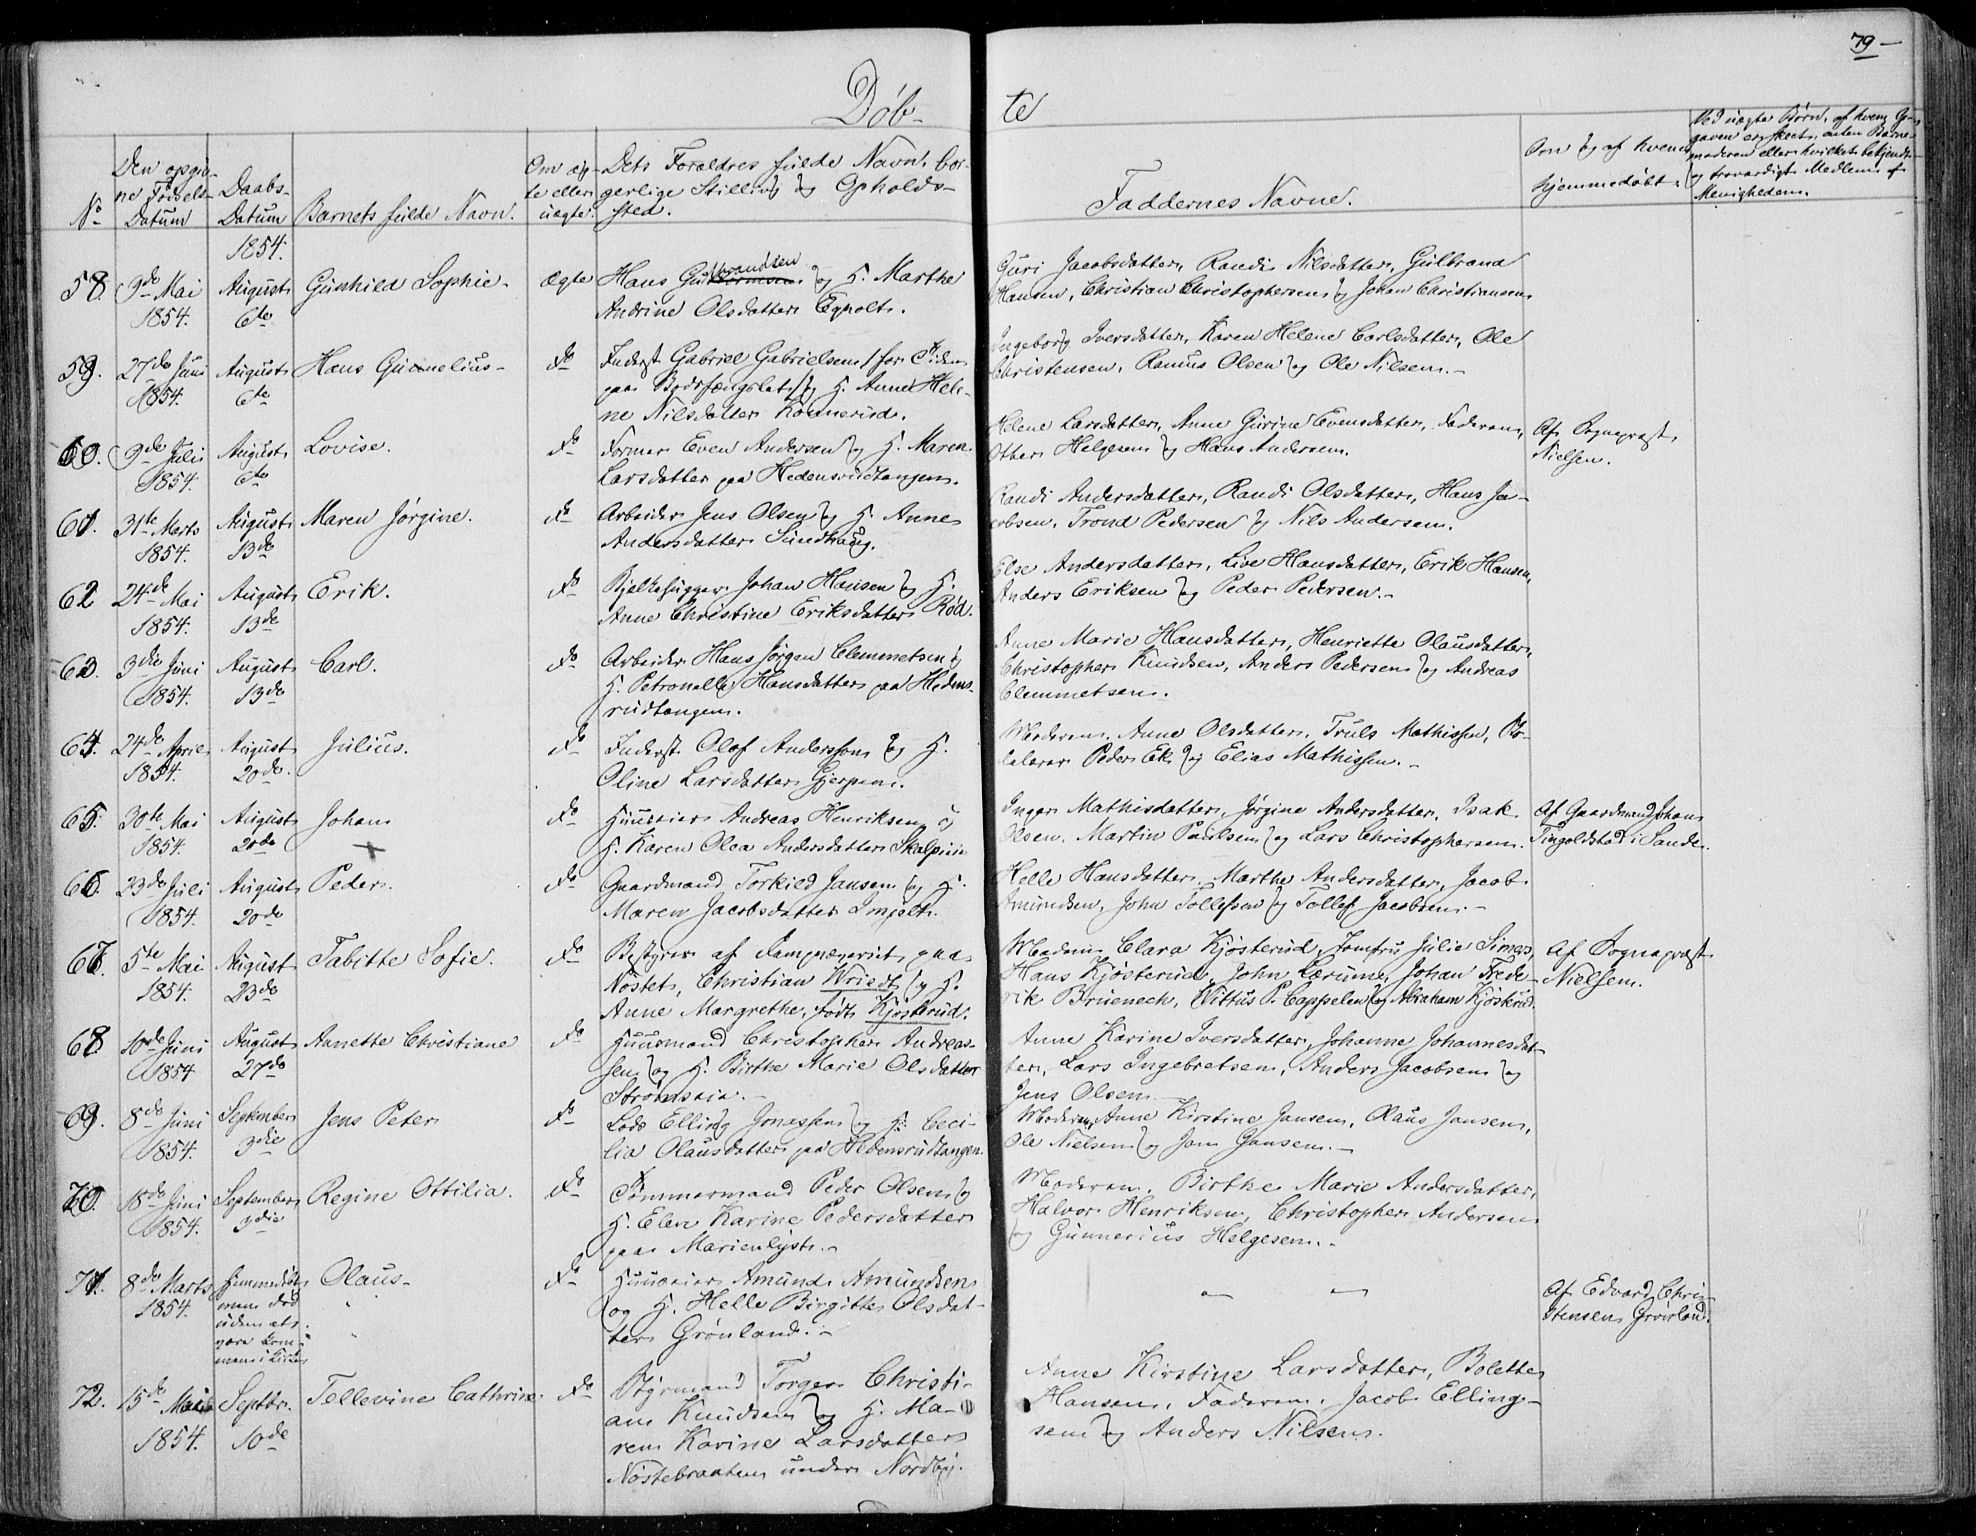 79
Døb-
te
No
Den opgiv-
ne Fødsels-
Datum
Daabs-
Datum
Barnets fulde Navn.
Om æg-
te eller
uægte.
Dets Forældres fulde Navn, bor-
gerlige Stilling og Opholds-
sted.
Faddernes Navne.
Om og af hvem
hjemmedøbt.
Ved uægte Børn, af hvem
gaven er skeet, enten Barne-
moderen eller hvilket bekjendt
og troværdigt Medlem af
Menigheden.
1854.
58. 9de Mai August Gunhild Sophie - ægte Hans Gulbrandsen og H. Marthe
1854. 6te Andrine Olsdatter Egholt.
Guri Jacobsdatter, Randi Nilsdatter, Gulbrand
Hansen, Christian Christophersen og Johan Christiansen
59. 27de Juni August Hans Gunnelius - do Inderst Gabriel Gabrielsen, for Tiden
1854. 6te paa Bodsfængslet, og H. Anne Hele-
ne Nilsdatter Konnerud.
Ingeborg Iversdatter, Karen Helene Carlsdatter, Ole
Christensen, Ramus Olsen og Ole Nilsen. -
60. 9de Juli August Lovise. do Former Even Andersen og H. Maren
1854. 6te Larsdatter paa Hedensrudtangen.
Helene Larsdatter, Anne Gurine Evensdatter, Faderen, Af Sognepræst
Otter Helgesen og Hans Andersen. Nielsen.
61. 31te Marts August Maren Jørgine. do Arbeider Jens Olsen og H. Anne
1854. 13de Andersdatter Sundhaug.
Randi Andersdatter, Randi Olsdatter, Hans Ja-
cobsen, Trond Pedersen og Nils Andersen.
62 24de Mai August Erik. do Bjelkehugger Johan Hansen og H.
1854. 13de Anne Christine Eriksdatter Rød.
Else Andersdatter, Live Hansdatter, Erik Hansen,
Anders Eriksen og Peder Pedersen. -
63. 3die Juni August Carl. do Arbeider Hans Jørgen Clemmetsen og
1854. 13de H. Petronelle Hansdatter paa Hedens-
rudtangen.
Anne Marie Hansdatter, Henriette Olausdatter,
Christopher Knudsen, Anders Pedersen og Andreas
Clemmetsen.
64. 24de April August Julius. do Inderst Olof Andersson og H.
1854. 20de. Oline Larsdatter Gjerpen.
Moderen, Anne Olsdatter, Truls Mathissen,
Peder Ek og Elias Mathissen. -
65. 30te Mai August Johan do Huuseier Andreas Henriksen og
1854. 20de H. Karen Olea Andersdatter
Inger Mathisdatter, Jørgine Andersdatter, Isak Af Gaardmand Johan
Olsen, Martin Paulsen og Lars Christophersen. Tingoldstad i Sande.
66. 23de Juli August Peder. do Gaardmand Torkild Jansen og H.
1854. 20de Maren Jacobsdatter Imjelt.
Helle Hansdatter, Marthe Andersdatter, Jacob
Amundsen, John Tollefsen og Tollef Jacobsen. -
67. 5te Mai August Tabitte Sofie. do Bestyrer af Dampmaskineriet paa
1854. 23de Nøstet, Christian Wriedt og H.
Anne Margrethe, født Kjøsterud.
Madam Clara Kjøsterud, Jomfru Julie Simers, Af Sognepræst
Hans Kjøsterud, John Lærum, Johan Frede- Nielsen.
rik Bruenech, Wittus P. Cappelen og Abraham Kjøsterud.
68 10de Juni August Annette Christiane do Huusmand Christopher Andreas-
1854 27de sen og H. Birthe Marie Olsdatter
Strømseia. -
Anne Karine Iversdatter, Johanne Johannesdat-
ter, Lars Ingebretsen, Anders Jacobsen og
Jens Olsen.
69. 8de Juni September Jens Peter do Lods Elling Jonassen og H. Ceci-
1854. 3die lia Olausdatter paa Hedensrudtangen
Moderen, Anne Kirstine Jansen, Olaus Jansen,
Ole Nielsen og Jan Jansen. -
70. 18de Juni September Regine Ottilia. do Tømmermand Peder Olsen og
1854. 3die H. Elen Karine Pedersdatter
paa Marienlyst. -
Moderen, Birthe Marie Andersdatter,
Halvor Henriksen, Christopher Andersen
og Gunnerius Helgesen. -
71. 8de Marts hjemmedøbt Olaus - do Huuseier Amund Amundsen
1854. men død og H. Helle Birgitte Olsdat-
uden at ter Grønland. -
være kom-
men i Kirke
Af Edvard Chri-
stensen Grønland.
72. 15de Mai Septbr. Tellevine Cathrine. do Styrmand Torger Christi-
1854. 10de an Knudsen og H. Ma-
ren Karine Larsdatter
Nøstebraaten under Nordby.
Anne Kirstine Larsdatter, Bolette
Hansen, Faderen, Jacob Elling-
sen og Anders Nilsen.